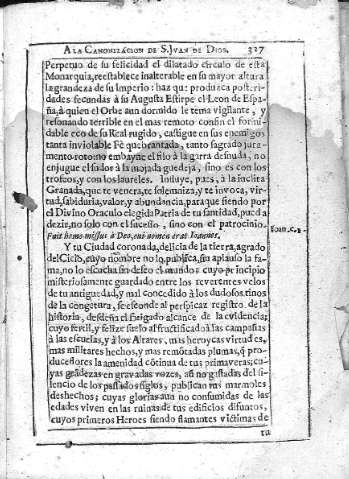 A LA CANONIZACION DE S. JVAN DE DIOS. 327
Perpetuo de su felicidad el dilatado circulo de esta
Monarquia, reestablece inalterable en su mayor altura
la grandeza de su Imperio: haz que produzca poste-ri-
dades fecundas à su Augusta Estirpe el Leon de Espa-
ña, à quien el Orbe aun dormido le tema vigilante, y
resonando terrible en el mas remoto confin el formi-
dable eco de su Real rugido, castigue en sus enemigos
tanta inviolable Fè quebrantada, tanto sagrado jura-
mento roto: no embayne el filo à la garra desnuda, no
enjugue el sudor à la mojada guedeja, sino es con los
trofeos, y con los laureles. Influye, pues, à la inclita
Granada, que te venera, te solemniza, y te invoca, vir-
tud, sabiduria, valor, y abundancia, para que siendo por
el Divino Oraculo elegida Patria de tu santidad, pueda
dezir, no solo con el sucesso, sino con el patrocinio.
Fuit homo missus à Deo, cui nomen erat Ioannes.
Ioan. c. 1.
Y tu Ciudad coronada, delicia de la tierra, agrado
del Cielo, cuyo nombre no lo publica, su aplauso la fa-
ma, no lo escucha su deseo el mundo: cuyo principio
misteriosamente guardado entre los reverentes velos
de tu antiguedad, y mal concedido à los dudosos tinos
de la congetura, se esconde al perspicaz registro de la
historia, desdeña el fatigado alcance de la evidencia;
cuyo fertil, y felize suelo ha fructificado à las campañas
à las escuelas, y à los Altares, mis heroycas virtudes,
mas militares hechos, y mas remontadas plumas, q̃ pro-
duce flores la amenidad cõtinua de tus primaveras; cu-
yas grãdezas en gravadas vozes, aũ no gastadas del si-
lencio de los passados siglos, publican sus marmoles
deshechos; cuyas glorias aun no consumidas de las
edades viven en las ruinas de tus edificios difuntos,
cuyos primeros Heroes siendo flamantes victimas de
tu